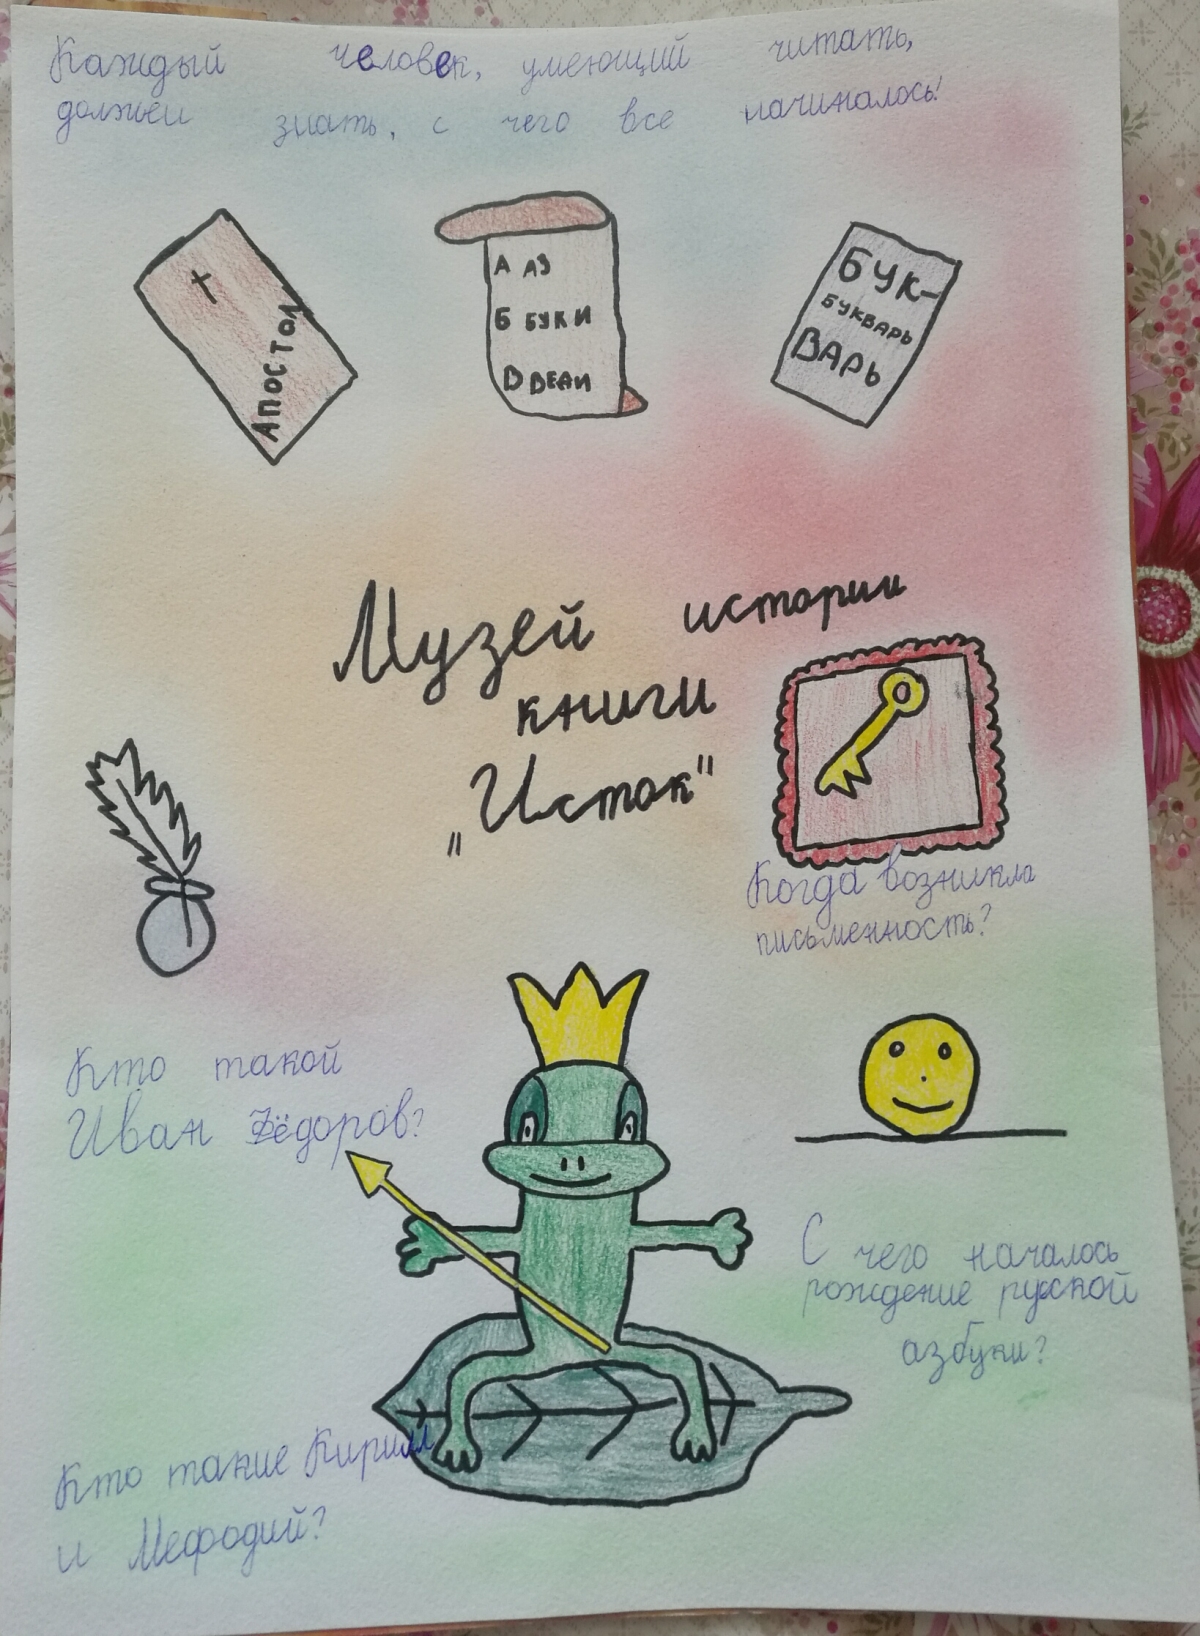 Каждый человек, умеющий читать,
должен знать, с чего все начиналось!
Апостол
А аз
Б буки
В веди
Бук-
букварь
варь
Музей истории
книги
„Исток"
Когда возникла
письменность?
Кто такой
Иван Фёдоров?
С чего началось
рождение русской
азбуки?
Кто такие Кирилл
и Мефодий?